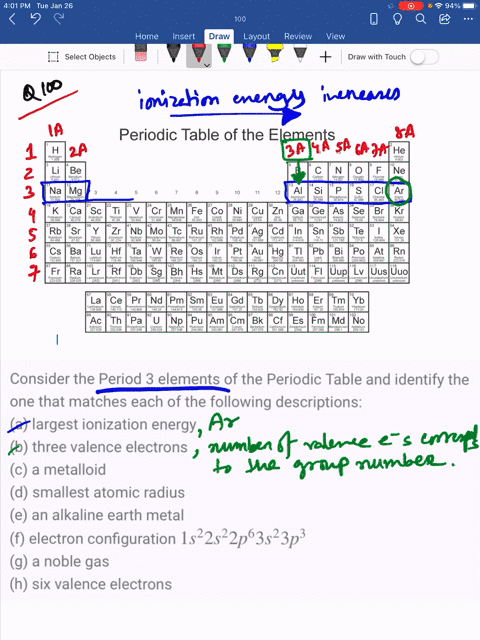 4:01 PM Tue Jan 26
94%
100
Home Insert Draw Layout Review View
Select Objects
Draw with Touch
Q100
ionization energy increases
Periodic Table of the Elements
1A 2A 3A 4A 5A 6A 7A 8A
1 H He
2 Li Be C N O F Ne
3 Na Mg 3 4 5 6 7 8 9 10 11 12 Al Si P S Cl Ar
4 K Ca Sc Ti V Cr Mn Fe Co Ni Cu Zn Ga Ge As Se Br Kr
5 Rb Sr Y Zr Nb Mo Tc Ru Rh Pd Ag Cd In Sn Sb Te I Xe
6 Cs Ba Lu Hf Ta W Re Os Ir Pt Au Hg Tl Pb Bi Po At Rn
7 Fr Ra Lr Rf Db Sg Bh Hs Mt Ds Rg Cn Uut Fl Uup Lv Uus Uuo
La Ce Pr Nd Pm Sm Eu Gd Tb Dy Ho Er Tm Yb
Ac Th Pa U Np Pu Am Cm Bk Cf Es Fm Md No
Consider the Period 3 elements of the Periodic Table and identify
the one that matches each of the following descriptions:
(a) largest ionization energy, Ar
(b) three valence electrons, number of valence e-s corresp
to the group number.
(c) a metalloid
(d) smallest atomic radius
(e) an alkaline earth metal
(f) electron configuration 1s²2s²2p⁶3s²3p³
(g) a noble gas
(h) six valence electrons